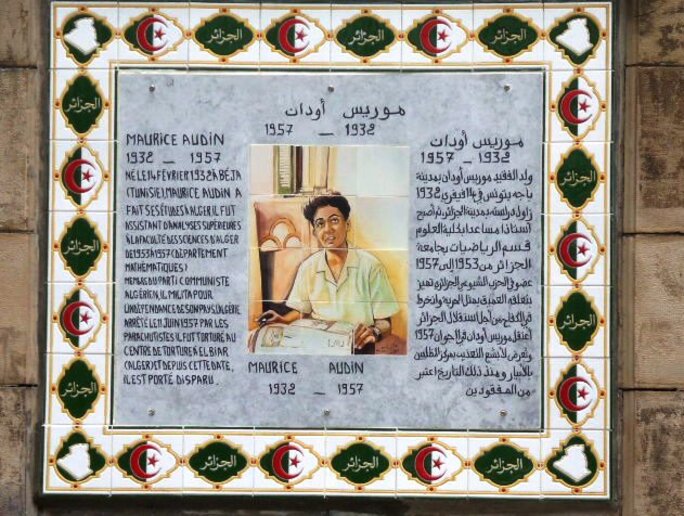 الجزائر الجزائر الجزائر
موريس أودان
1957 _ 1932
MAURICE AUDIN
1932 _ 1957
NÉ LE 14 FÉVRIER 1932 À BÉJA
(TUNISIE), MAURICE AUDIN A
FAIT SES ÉTUDES À ALGER. IL FUT
ASSISTANT D'ANALYSES SUPÉRIEURES
À LA FACULTÉ DES SCIENCES D'ALGER
DE 1953 À 1957 (DÉPARTEMENT
MATHÉMATIQUES)
MEMBRE DU PARTI COMMUNISTE
ALGÉRIEN, IL MILITA POUR
L'INDÉPENDANCE DE SON PAYS, L'ALGÉRIE
ARRÊTÉ LE 11 JUIN 1957 PAR LES
PARACHUTISTES IL FUT TORTURÉ AU
CENTRE DE TORTURE D'EL BIAR
(ALGER) DEPUIS CETTE DATE,
IL EST PORTÉ DISPARU.
موريس أودان
1957 _ 1932
ولد الفقيد موريس أودان بمدينة
باجه بتونس في 14 فيفري 1932
زاول دراسته بمدينة الجزائر ثم أصبح
أستاذا مساعدا بكلية العلوم
قسم الرياضيات بجامعة
الجزائر من 1953 إلى 1957
عضو في الحزب الشيوعي الجزائري تميز
بتعلقه العميق بمثل الحرية وانخرط
في الكفاح من أجل استقلال الجزائر
أعتقل موريس أودان في 11 جوان 1957
وتعرض لأبشع التعذيب بمركز المظليين
بالأبيار ومنذ ذلك التاريخ اعتبر
من المفقودين
MAURICE AUDIN
1932 _ 1957
الجزائر
الجزائر
الجزائر
الجزائر
الجزائر
الجزائر الجزائر الجزائر